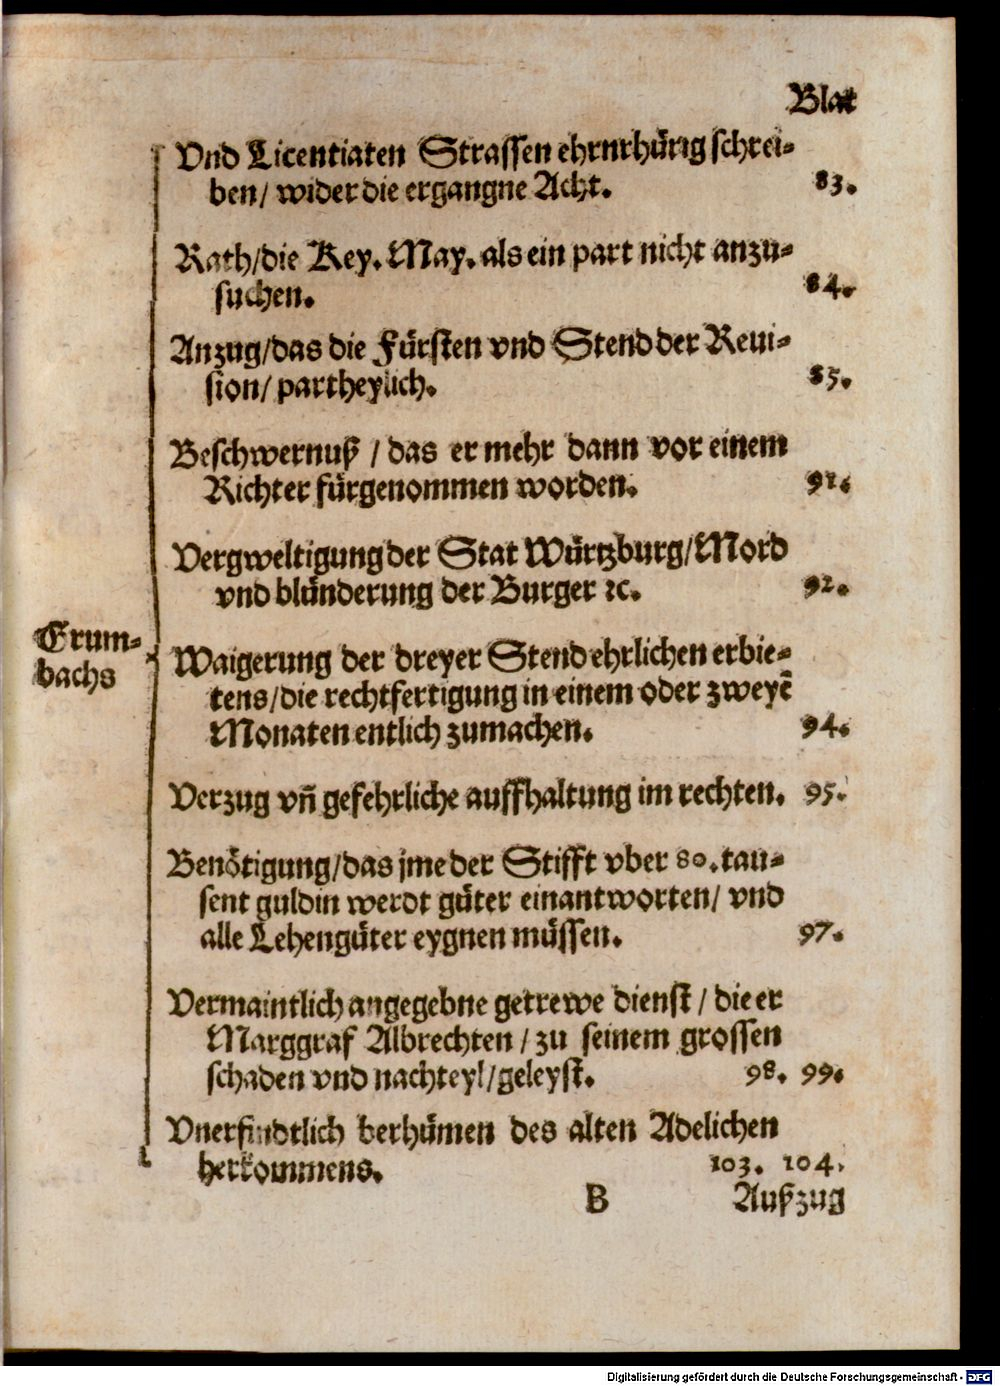 Blat
Vnd Licentiaten Strassen ehrnrhürig schrei-
ben/ wider die ergangne Acht. 83.
Rath/die Key. May. als ein part nicht anzu-
suchen. 84.
Anzug/das die Fürsten vnd Stend der Reui-
sion/ partheylich. 85.
Beschwernuß / das er mehr dann vor einem
Richter fürgenommen worden. 91.
Vergweltigung der Stat Würtzburg/Mord
vnd blünderung der Burger ꝛc. 92.
Grum-
bachs
Waigerung der dreyer Stend ehrlichen erbie-
tens/die rechtfertigung in einem oder zweyē
Monaten entlich zumachen. 94.
Verzug vn̄ gefehrliche auffhaltung im rechten. 95.
Benötigung/das jme der Stifft vber 80. tau-
sent guldin werdt güter einantworten/ vnd
alle Lehengüter eygnen müssen. 97.
Vermaintlich angegebne getrewe dienst / die er
Marggraf Albrechten / zu seinem grossen
schaden vnd nachteyl/geleyst. 98. 99.
Vnerfindtlich berhümen des alten Adelichen
herkommens. 103. 104.
B Außzug
Digitalisierung gefördert durch die Deutsche Forschungsgemeinschaft - DFG